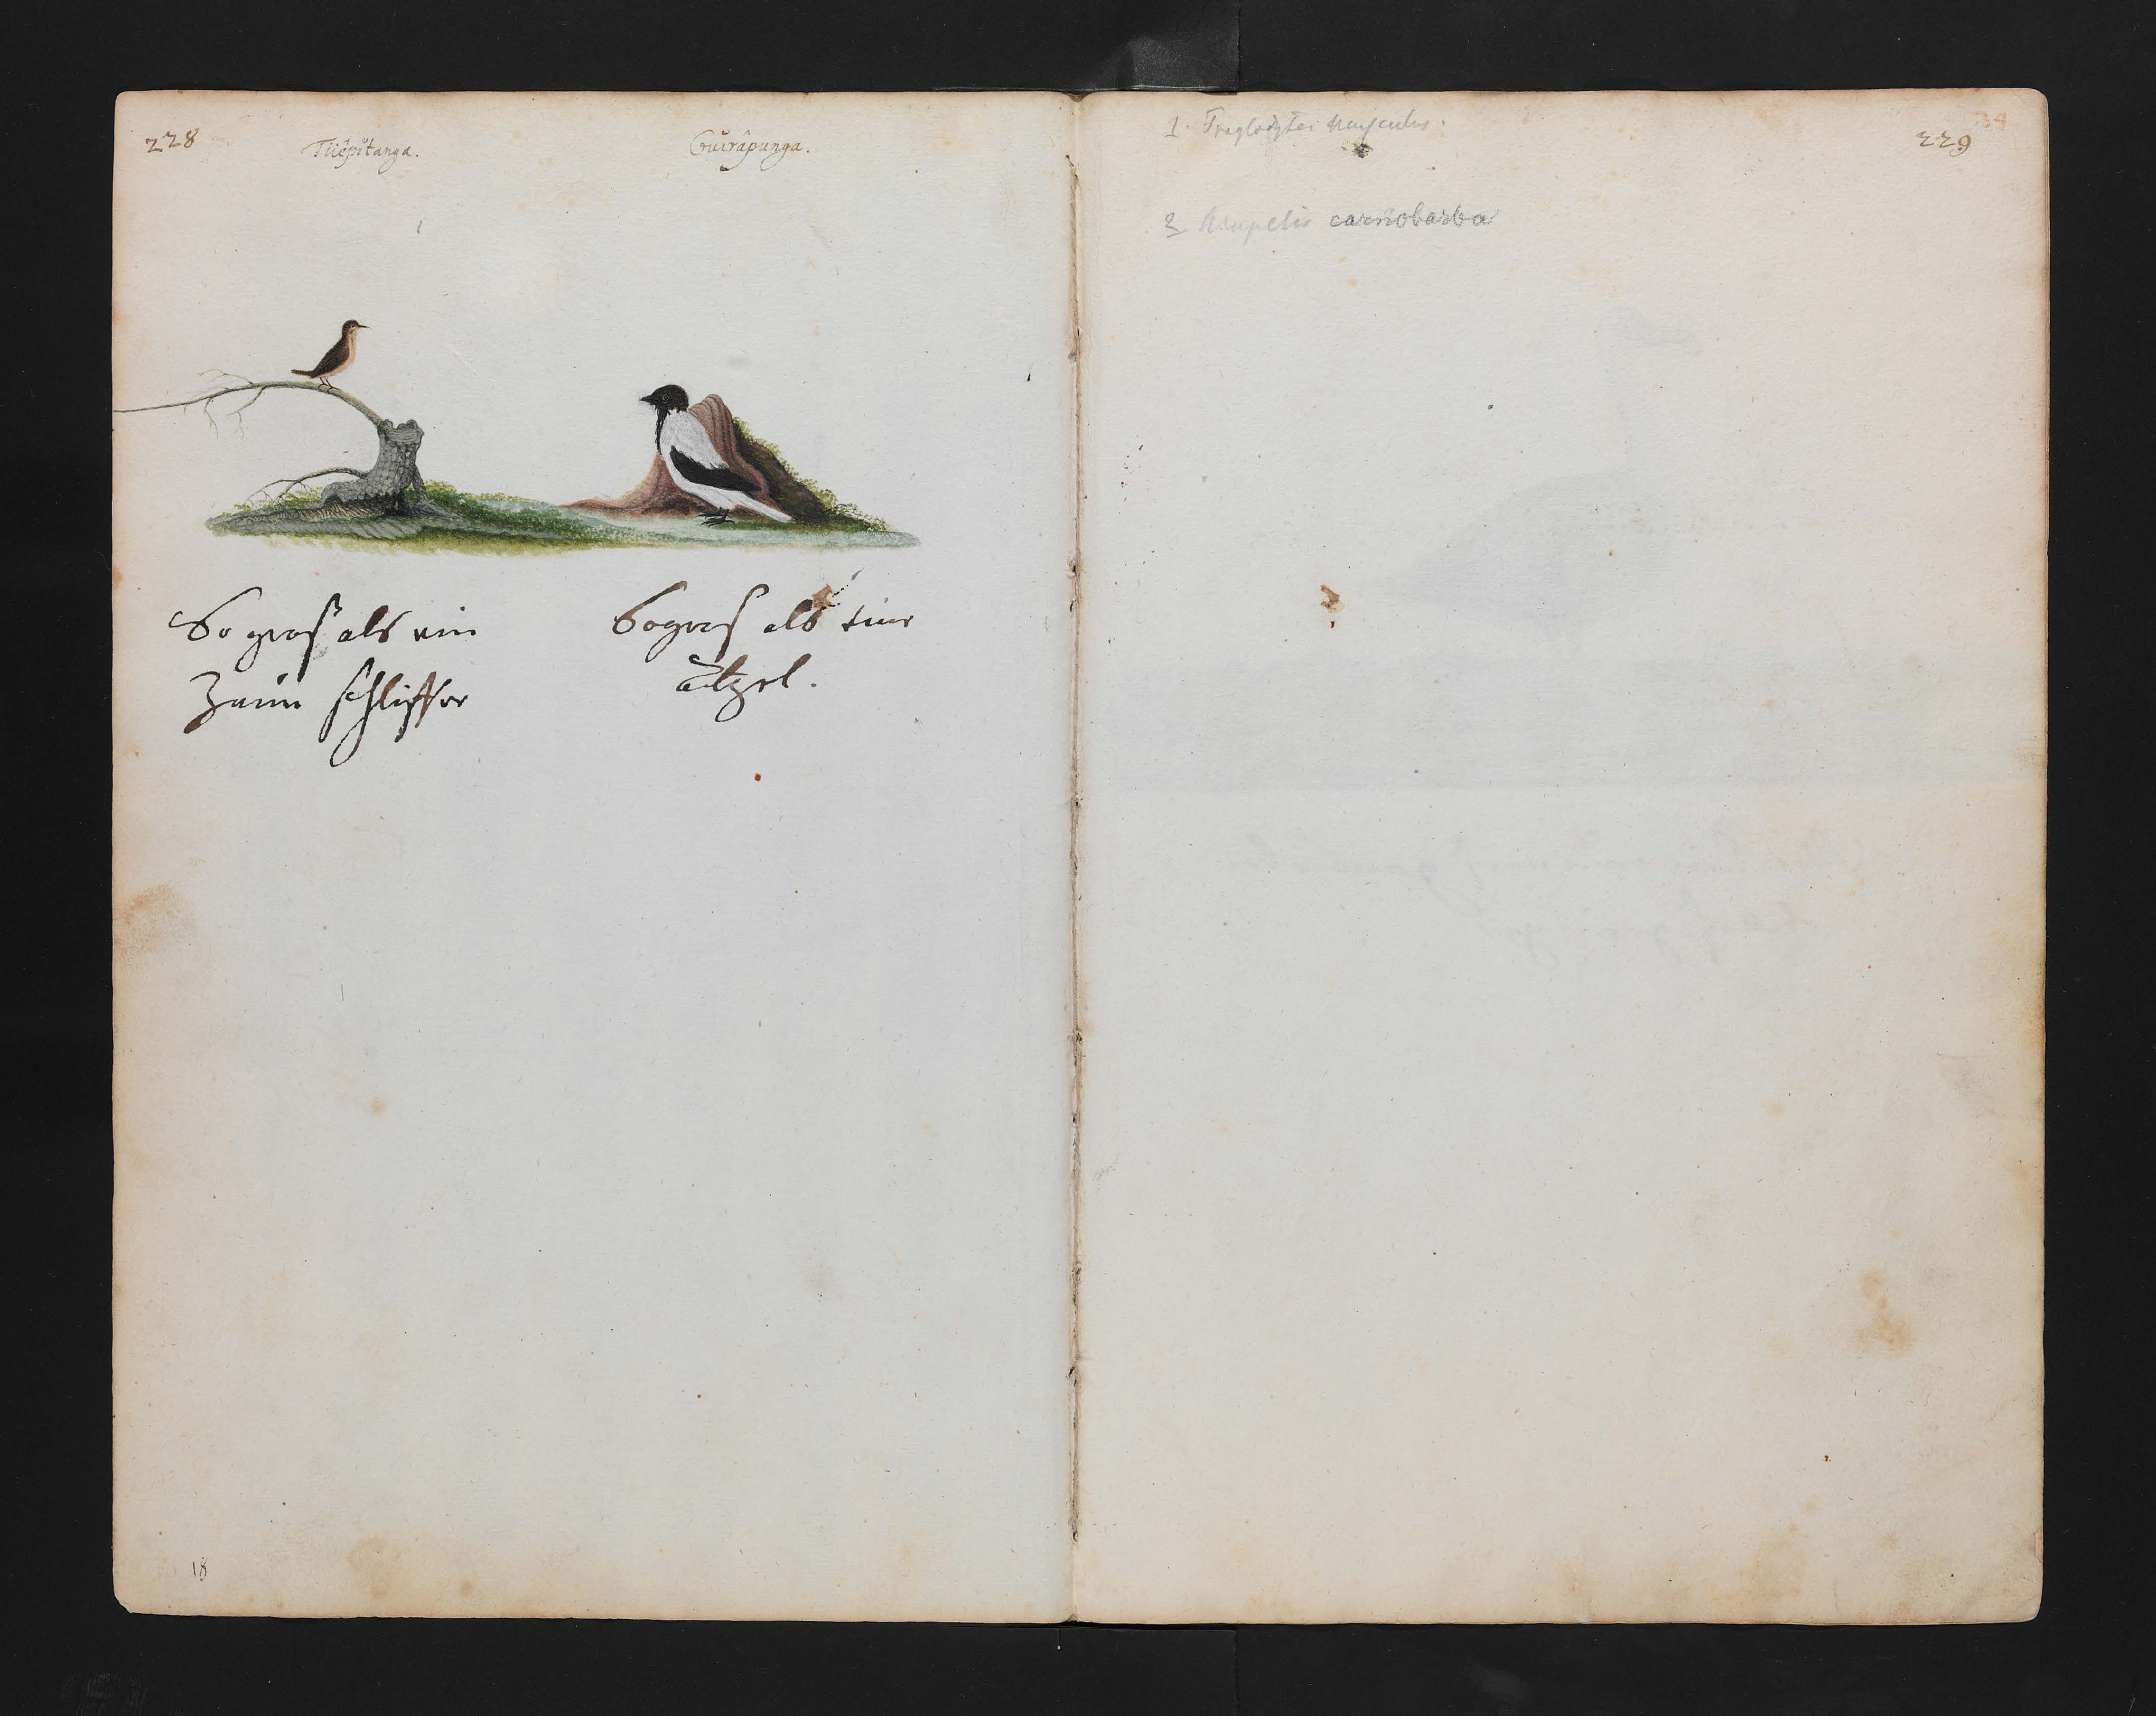 228
Tiiêpîtanga.
Guirâpunga.
So gros als ein
Zaun schlipffer
So gros als eine
atzel.
18
1. Troglodytes musculus.
34
229
2 Ampelis carnobarba